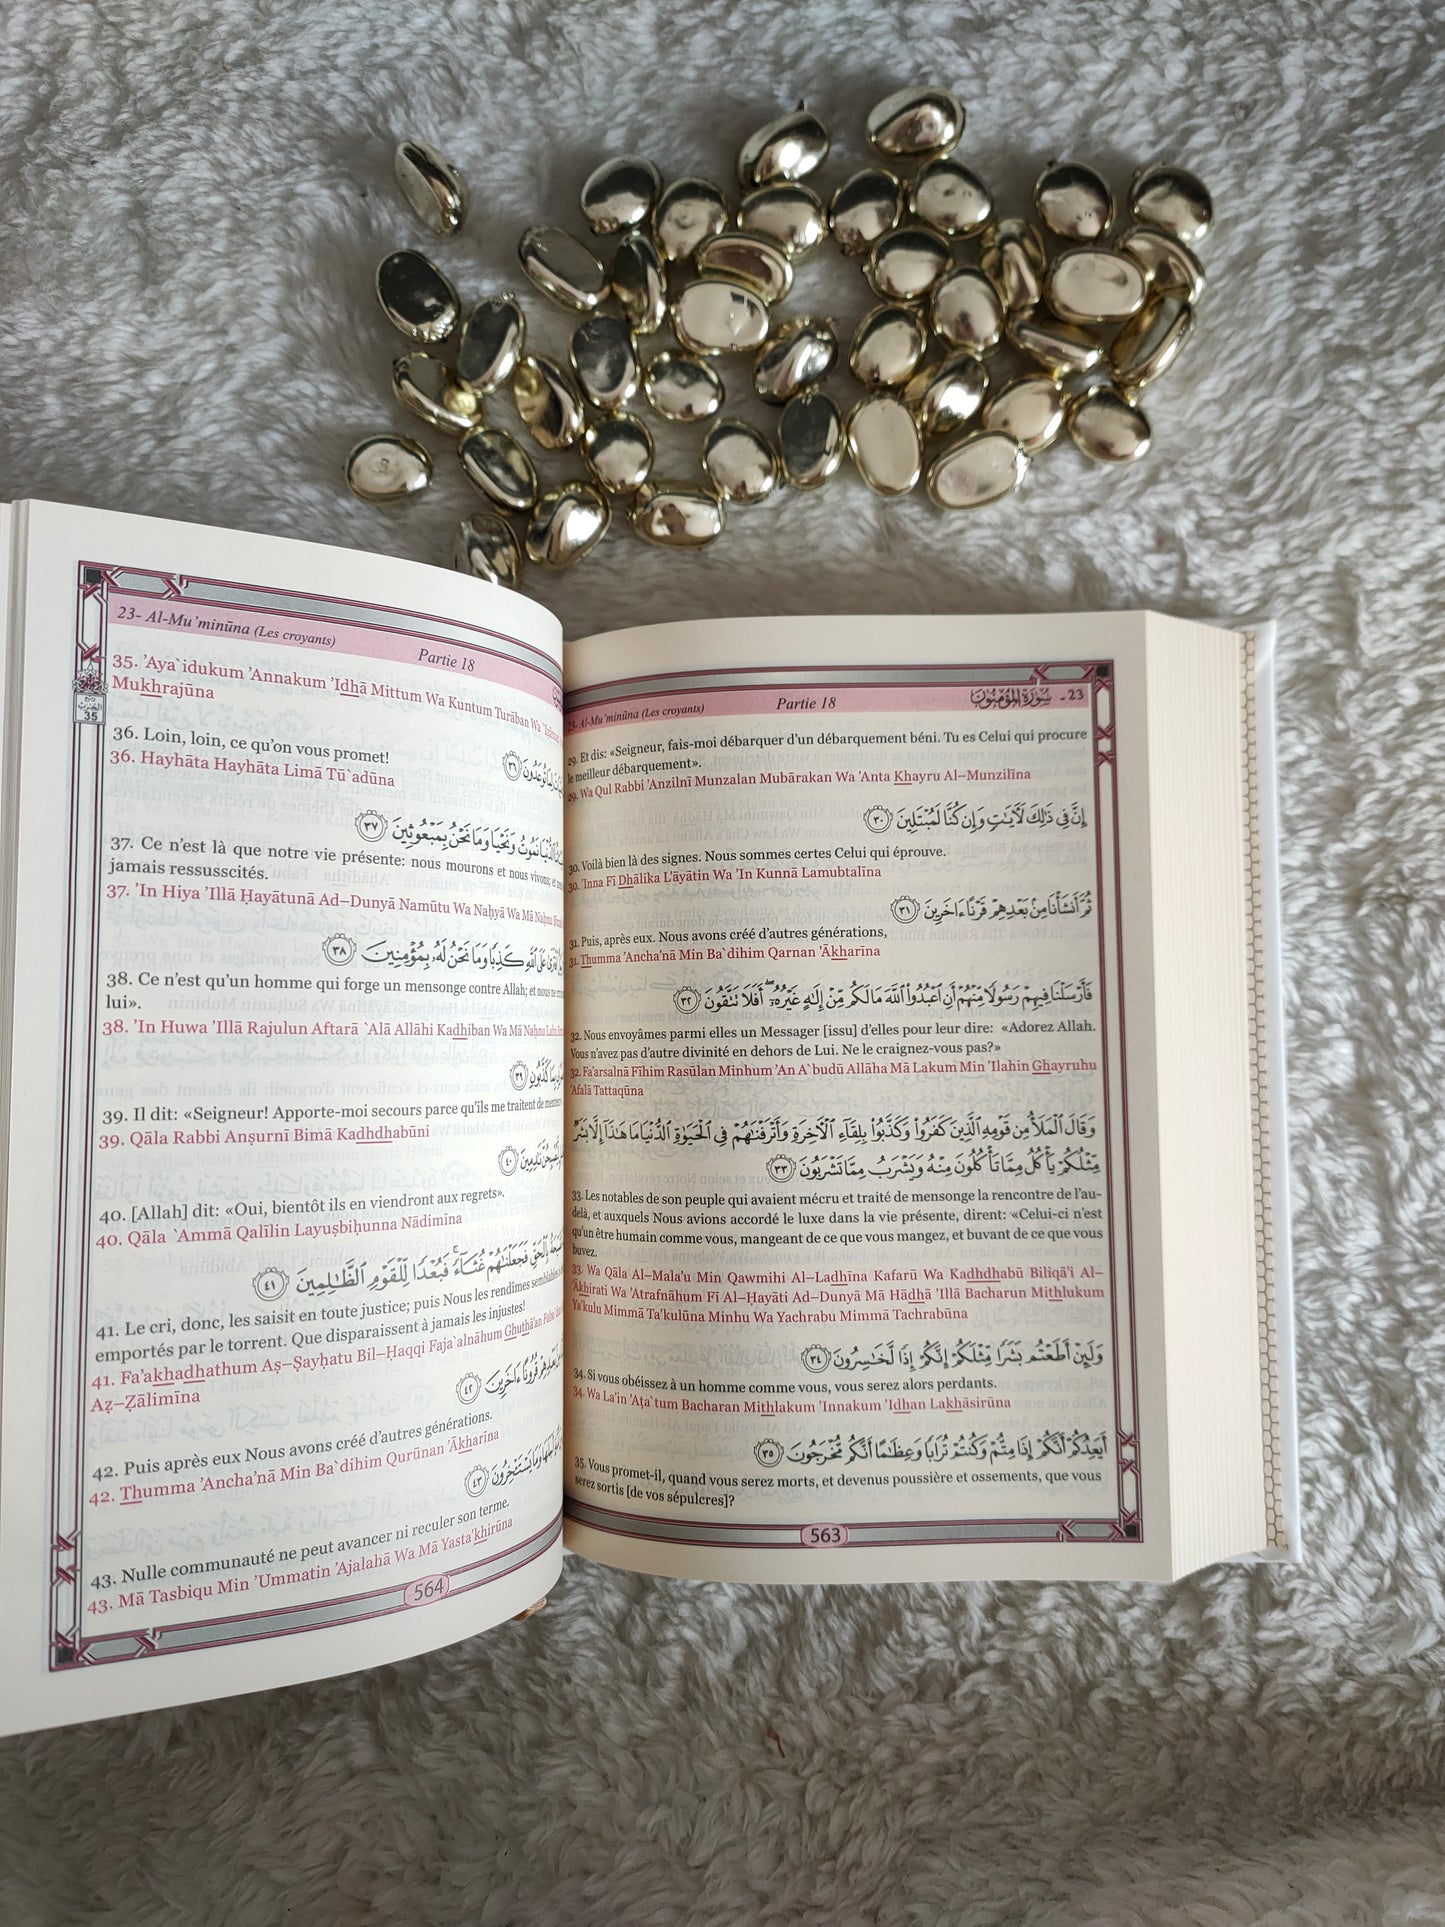 23- Al-Mu'minūna (Les croyants) Partie 18 سُورَةُ المُؤْمِنُون - 23
29. Et dis: «Seigneur, fais-moi débarquer d'un débarquement béni. Tu es Celui qui procure
le meilleur débarquement».
29. Wa Qul Rabbi 'Anzilnī Munzalan Mubārakan Wa 'Anta Khayru Al–Munzilīna
إِنَّ فِي ذَٰلِكَ لَآيَاتٍ وَإِن كُنَّا لَمُبْتَلِينَ ٣٠
30. Voilà bien là des signes. Nous sommes certes Celui qui éprouve.
30. 'Inna Fī Dhālika L'āyātin Wa 'In Kunnā Lamubtalīna
ثُمَّ أَنشَأْنَا مِنۢ بَعْدِهِمْ قَرْنًا ءَاخَرِينَ ٣١
31. Puis, après eux. Nous avons créé d'autres générations,
31. Thumma 'Ancha'nā Min Ba`dihim Qarnan 'Ākharīna
فَأَرْسَلْنَا فِيهِمْ رَسُولًا مِّنْهُمْ أَنِ اعْبُدُوا۟ اللَّهَ مَا لَكُم مِّنْ إِلَٰهٍ غَيْرُهُۥٓ ۖ أَفَلَا تَتَّقُونَ ٣٢
32. Nous envoyâmes parmi elles un Messager [issu] d'elles pour leur dire: «Adorez Allah.
Vous n'avez pas d'autre divinité en dehors de Lui. Ne le craignez-vous pas?»
32. Fa'arsalnā Fīhim Rasūlan Minhum 'An A`budū Allāha Mā Lakum Min 'Ilahin Ghayruhu
'Afalā Tattaqūna
وَقَالَ الْمَلَأُ مِن قَوْمِهِ الَّذِينَ كَفَرُوا۟ وَكَذَّبُوا۟ بِلِقَاءِ الْآخِرَةِ وَأَتْرَفْنَاهُمْ فِي الْحَيَوٰةِ الدُّنْيَا مَا هَٰذَا إِلَّا بَشَرٌ
مِّثْلُكُمْ يَأْكُلُ مِمَّا تَأْكُلُونَ مِنْهُ وَيَشْرَبُ مِمَّا تَشْرَبُونَ ٣٣
33. Les notables de son peuple qui avaient mécru et traité de mensonge la rencontre de l'au-
delà, et auxquels Nous avions accordé le luxe dans la vie présente, dirent: «Celui-ci n'est
qu'un être humain comme vous, mangeant de ce que vous mangez, et buvant de ce que vous
buvez.
33. Wa Qāla Al–Mala'u Min Qawmihi Al–Ladhīna Kafarū Wa Kadhdhabū Biliqā'i Al–
'Ākhirati Wa 'Atrafnāhum Fī Al–Ḥayāti Ad–Dunyā Mā Hādhā 'Illā Bacharun Mithlukum
Ya'kulu Mimmā Ta'kulūna Minhu Wa Yachrabu Mimmā Tachrabūna
وَلَئِنْ أَطَعْتُم بَشَرًا مِّثْلَكُمْ إِنَّكُمْ إِذًا لَّخَاسِرُونَ ٣٤
34. Si vous obéissez à un homme comme vous, vous serez alors perdants.
34. Wa La'in 'Aṭa`tum Bacharan Mithlakum 'Innakum 'Idhan Lakhāsirūna
أَيَعِدُكُمْ أَنَّكُمْ إِذَا مِتُّمْ وَكُنتُمْ تُرَابًا وَعِظَامًا أَنَّكُم مُّخْرَجُونَ ٣٥
35. Vous promet-il, quand vous serez morts, et devenus poussière et ossements, que vous
serez sortis [de vos sépulcres]?
563
23- Al-Mu'minūna (Les croyants) Partie 18
35
35. 'Aya`idukum 'Annakum 'Idhā Mittum Wa Kuntum Turāban Wa
Mukhrajūna
لِمَا تُوعَدُونَ ٣٦
36. Loin, loin, ce qu'on vous promet!
36. Hayhāta Hayhāta Limā Tū`adūna
الدُّنْيَا نَمُوتُ وَنَحْيَا وَمَا نَحْنُ بِمَبْعُوثِينَ ٣٧
37. Ce n'est là que notre vie présente: nous mourons et nous vivons;
jamais ressusscités.
37. 'In Hiya 'Illā Ḥayātunā Ad–Dunyā Namūtu Wa Naḥyā Wa Mā Naḥnu
عَلَى اللَّهِ كَذِبًا وَمَا نَحْنُ لَهُ بِمُؤْمِنِينَ ٣٨
38. Ce n'est qu'un homme qui forge un mensonge contre Allah; et nous ne
lui».
38. 'In Huwa 'Illā Rajulun Aftarā `Alā Allāhi Kadhiban Wa Mā Naḥnu Lahu
بِمَا كَذَّبُونِ ٣٩
39. Il dit: «Seigneur! Apporte-moi secours parce qu'ils me traitent de
39. Qāla Rabbi Anṣurnī Bimā Kadhdhabūni
نَادِمِينَ ٤٠
40. [Allah] dit: «Oui, bientôt ils en viendront aux regrets».
40. Qāla `Ammā Qalīlin Layuṣbiḥunna Nādimīna
بِالْحَقِّ فَجَعَلْنَاهُمْ غُثَاءً ۚ فَبُعْدًا لِّلْقَوْمِ الظَّالِمِينَ ٤١
41. Le cri, donc, les saisit en toute justice; puis Nous les rendîmes semblables
emportés par le torrent. Que disparaissent à jamais les injustes!
41. Fa'akhadhathum Aṣ–Ṣayḥatu Bil–Ḥaqqi Faja`alnāhum Ghuthā'an
Aẓ–Ẓālimīna
قُرُونًا ءَاخَرِينَ ٤٢
42. Puis après eux Nous avons créé d'autres générations.
42. Thumma 'Ancha'nā Min Ba`dihim Qurūnan 'Ākharīna
أَجَلَهَا وَمَا يَسْتَـْٔخِرُونَ ٤٣
43. Nulle communauté ne peut avancer ni reculer son terme.
43. Mā Tasbiqu Min 'Ummatin 'Ajalahā Wa Mā Yasta'khirūna
564